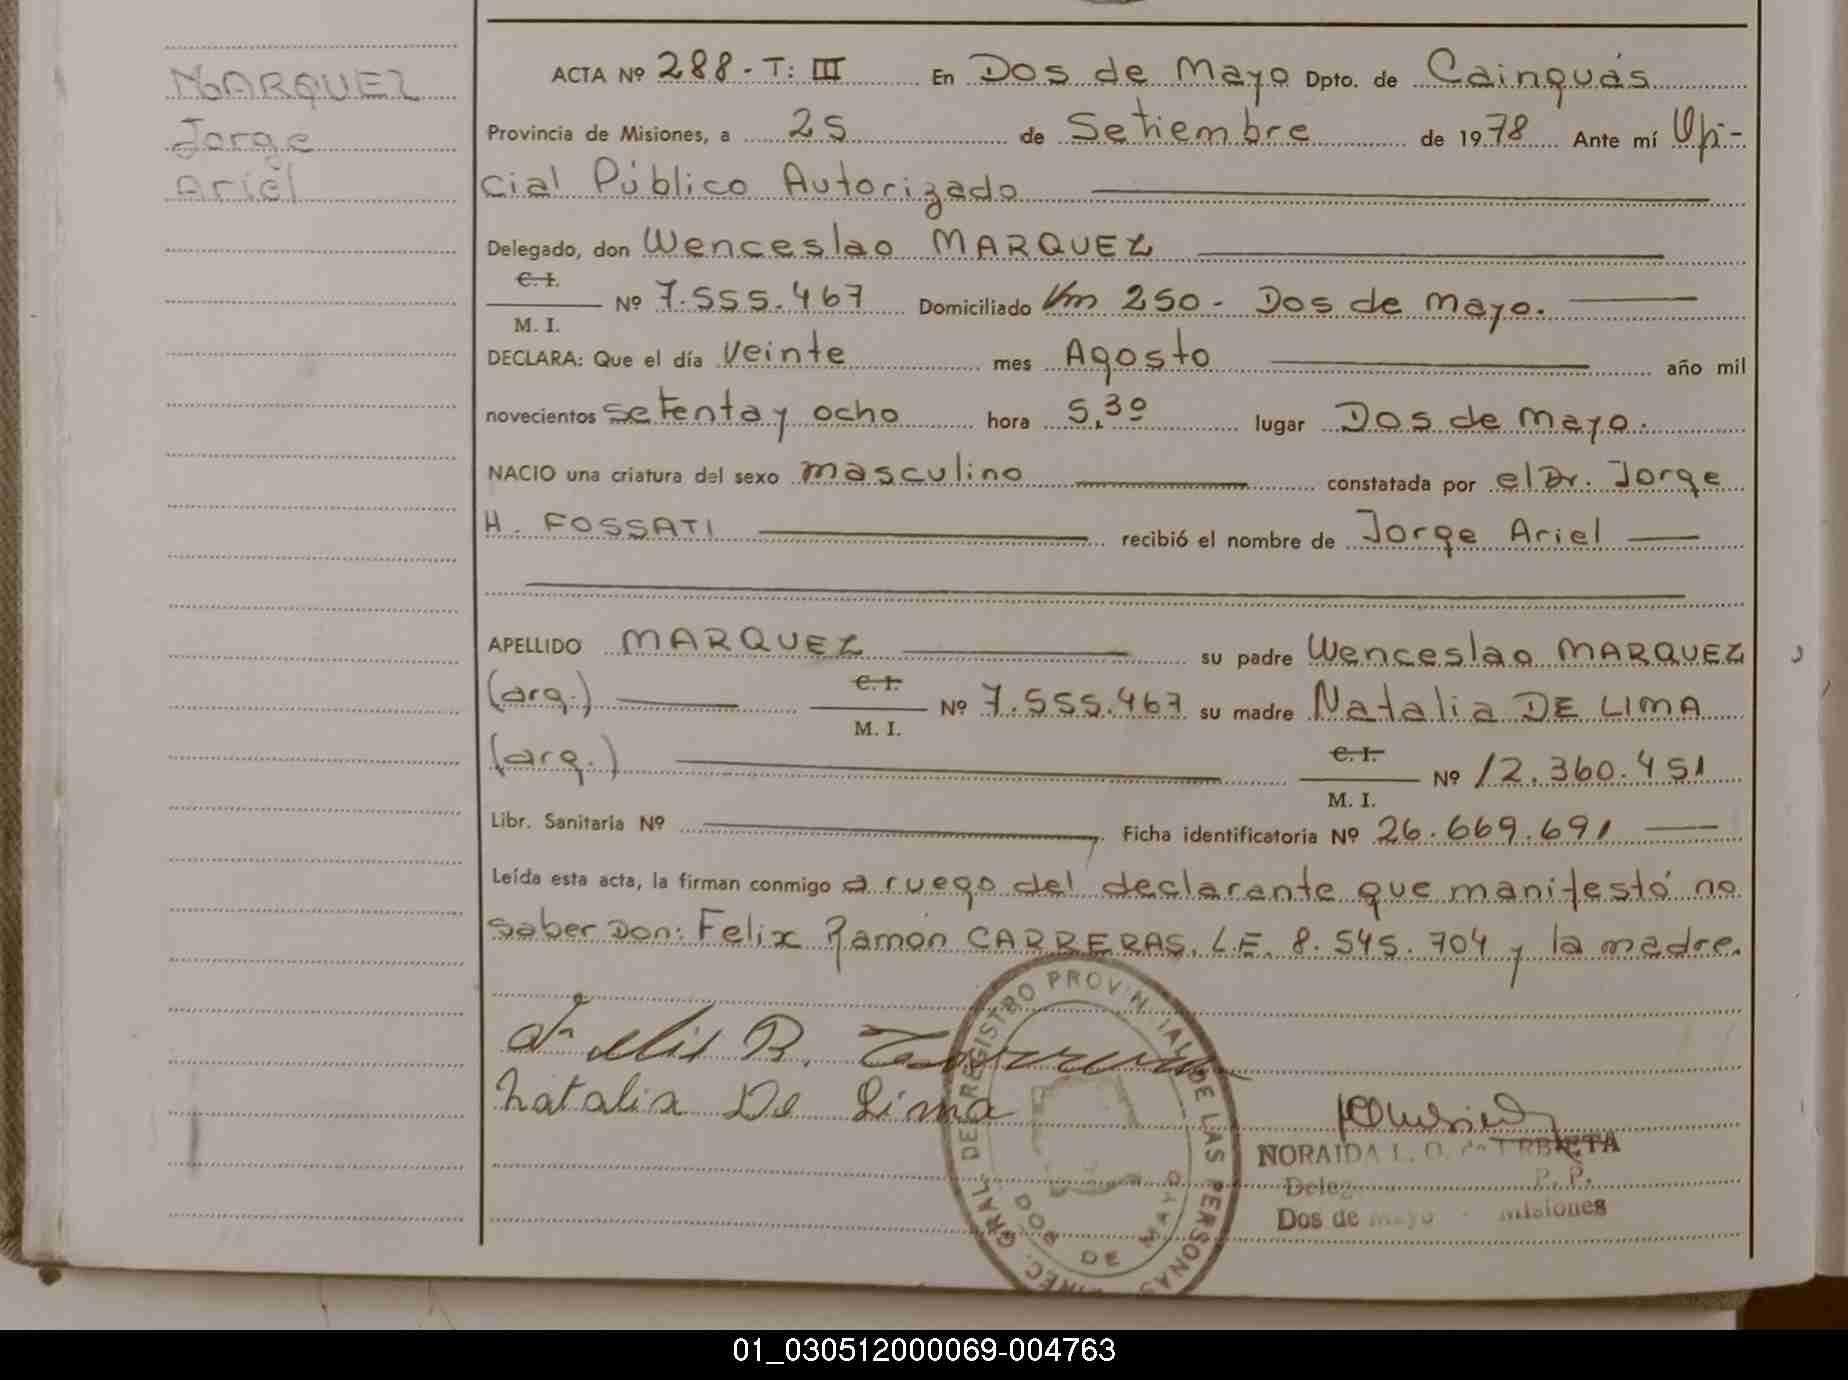 MARQUEZ
Jorge
Ariel
ACTA Nº 288 - T: III En Dos de Mayo Dpto. de Cainguás
Provincia de Misiones, a 25 de Setiembre de 1978 Ante mí Ofi-
cial Público Autorizado
Delegado, don Wenceslao MARQUEZ
C. I.
M. I. Nº 7.555.467 Domiciliado Km 250 - Dos de Mayo.
DECLARA: Que el día Veinte mes Agosto año mil
novecientos setenta y ocho hora 5,30 lugar Dos de Mayo.
NACIO una criatura del sexo masculino constatada por el Dr. Jorge
H. FOSSATI recibió el nombre de Jorge Ariel
APELLIDO MARQUEZ su padre Wenceslao MARQUEZ
(arg.) C. I.
M. I. Nº 7.555.467 su madre Natalia DE LIMA
(arg.) C. I.
M. I. Nº 12.360.451
Libr. Sanitaria Nº Ficha identificatoria Nº 26.669.691
Leída esta acta, la firman conmigo a ruego del declarante que manifestó no
saber Don: Felix Ramón CARRERAS. L.E. 8.545.704 y la madre.
Natalia De Lima
DIREC. GRAL. DEL REGISTRO PROVINCIAL DE LAS PERSONAS
DOS DE MAYO
NORAIDA L. O. de URBIETA
R. P. P.
Dos de Mayo - Misiones
01_030512000069-004763